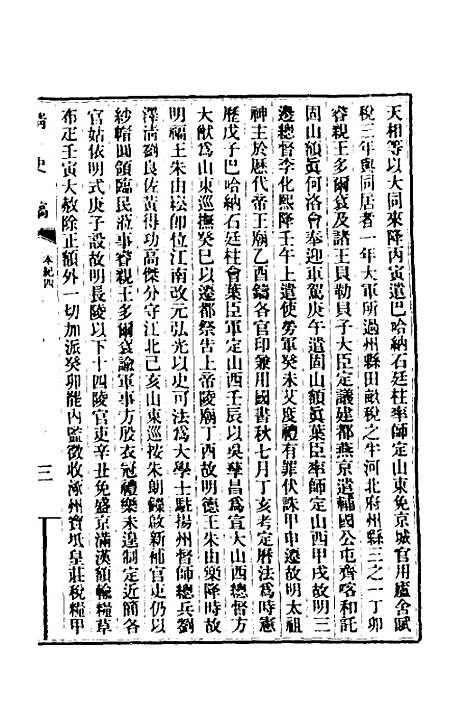 天相等以大同來降丙寅遣巴哈納石廷柱率師定山東免京城官用廬舍賦
稅三年與同居者一年大軍所過州縣田畝稅之半河北府州縣三之一丁卯
睿親王多爾袞及諸王貝勒貝子大臣定議建都燕京遣輔國公屯齊喀和託
固山額眞何洛會奉迎車駕庚午遣固山額眞葉臣率師定山西甲戌故明三
邊總督李化熙降壬午上遣使勞軍癸未艾度禮有罪伏誅甲申遷故明太祖
神主於歷代帝王廟乙酉鑄各官印兼用國書秋七月丁亥考定曆法爲時憲
曆戊子巴哈納石廷柱會葉臣軍定山西壬辰以吳孳昌爲宣大山西總督方
大猷爲山東巡撫癸巳以遷都祭告上帝陵廟丁酉故明德王朱由樂降時故
明福王朱由崧卽位江南改元弘光以史可法爲大學士駐揚州督師總兵劉
澤清劉良佐黃得功高傑分守江北己亥山東巡按朱朗鑅啟新補官吏仍以
紗帽圓領臨民莅事睿親王多爾袞諭軍事方殷衣冠禮樂未遑制定近簡各
官姑依明式庚子設故明長陵以下十四陵官吏辛丑免盛京滿漢額輸糧草
布疋壬寅大赦除正額外一切加派癸卯罷內監徵收涿州寶坻皇莊稅糧甲
清史稿
本紀四
三